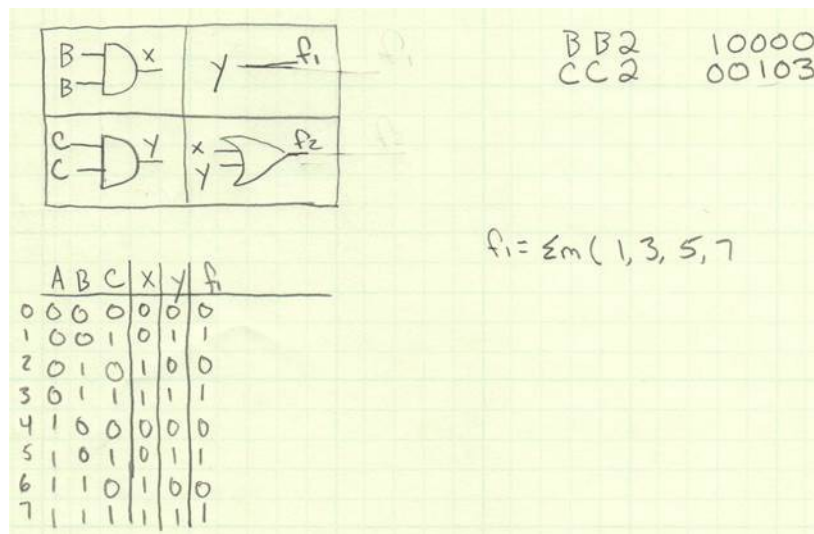 B x
B
y f₁
C y
C
x f₂
y
B B 2 10000
C C 2 00103
f₁ = Σm( 1, 3, 5, 7
A B C x y f₁
0 0 0 0 0 0 0
1 0 0 1 0 1 1
2 0 1 0 1 0 0
3 0 1 1 1 1 1
4 1 0 0 0 0 0
5 1 0 1 0 1 1
6 1 1 0 1 0 0
7 1 1 1 1 1 1